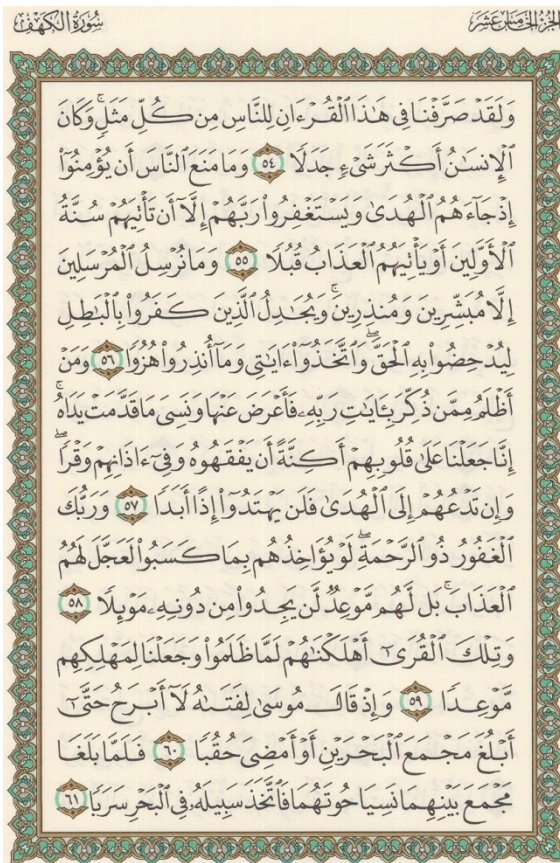 الجزء الخامس عشر
سورة الكهف
وَلَقَدْ صَرَّفْنَا فِي هَـٰذَا ٱلْقُرْءَانِ لِلنَّاسِ مِن كُلِّ مَثَلٍۚ وَكَانَ
ٱلْإِنسَـٰنُ أَكْثَرَ شَىْءٍ جَدَلًا ٥٤ وَمَا مَنَعَ ٱلنَّاسَ أَن يُؤْمِنُوٓا۟
إِذْ جَآءَهُمُ ٱلْهُدَىٰ وَيَسْتَغْفِرُوا۟ رَبَّهُمْ إِلَّآ أَن تَأْتِيَهُمْ سُنَّةُ
ٱلْأَوَّلِينَ أَوْ يَأْتِيَهُمُ ٱلْعَذَابُ قُبُلًا ٥٥ وَمَا نُرْسِلُ ٱلْمُرْسَلِينَ
إِلَّا مُبَشِّرِينَ وَمُنذِرِينَۚ وَيُجَـٰدِلُ ٱلَّذِينَ كَفَرُوا۟ بِٱلْبَـٰطِلِ
لِيُدْحِضُوا۟ بِهِ ٱلْحَقَّۖ وَٱتَّخَذُوٓا۟ ءَايَـٰتِى وَمَآ أُنذِرُوا۟ هُزُوًا ٥٦ وَمَنْ
أَظْلَمُ مِمَّن ذُكِّرَ بِـَٔايَـٰتِ رَبِّهِۦ فَأَعْرَضَ عَنْهَا وَنَسِىَ مَا قَدَّمَتْ يَدَاهُۚ
إِنَّا جَعَلْنَا عَلَىٰ قُلُوبِهِمْ أَكِنَّةً أَن يَفْقَهُوهُ وَفِىٓ ءَاذَانِهِمْ وَقْرًاۖ
وَإِن تَدْعُهُمْ إِلَى ٱلْهُدَىٰ فَلَن يَهْتَدُوٓا۟ إِذًا أَبَدًا ٥٧ وَرَبُّكَ
ٱلْغَفُورُ ذُو ٱلرَّحْمَةِۖ لَوْ يُؤَاخِذُهُم بِمَا كَسَبُوا۟ لَعَجَّلَ لَهُمُ
ٱلْعَذَابَۚ بَل لَّهُم مَّوْعِدٌ لَّن يَجِدُوا۟ مِن دُونِهِۦ مَوْئِلًا ٥٨
وَتِلْكَ ٱلْقُرَىٰٓ أَهْلَكْنَـٰهُمْ لَمَّا ظَلَمُوا۟ وَجَعَلْنَا لِمَهْلِكِهِم
مَّوْعِدًا ٥٩ وَإِذْ قَالَ مُوسَىٰ لِفَتَىٰهُ لَآ أَبْرَحُ حَتَّىٰٓ
أَبْلُغَ مَجْمَعَ ٱلْبَحْرَيْنِ أَوْ أَمْضِىَ حُقُبًا ٦٠ فَلَمَّا بَلَغَا
مَجْمَعَ بَيْنِهِمَا نَسِيَا حُوتَهُمَا فَٱتَّخَذَ سَبِيلَهُۥ فِى ٱلْبَحْرِ سَرَبًا ٦١